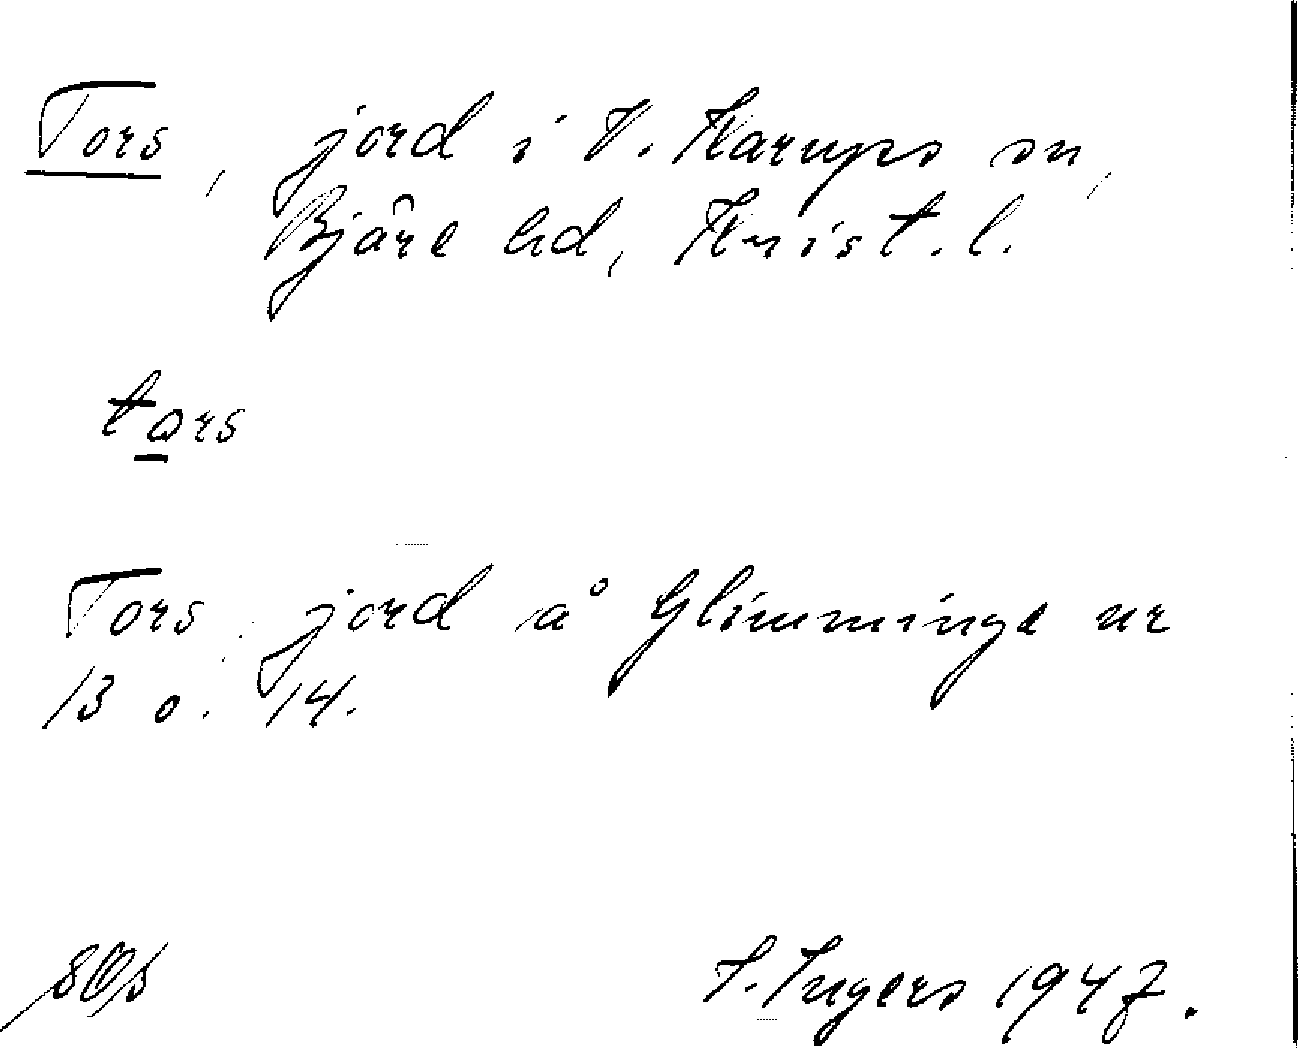 Tors, jord i V. Karups sn,
Bjäre hd, Krist. l.
tors
Tors, jord å Glimminge nr
13 o. 14.
I. Ingers 1947.